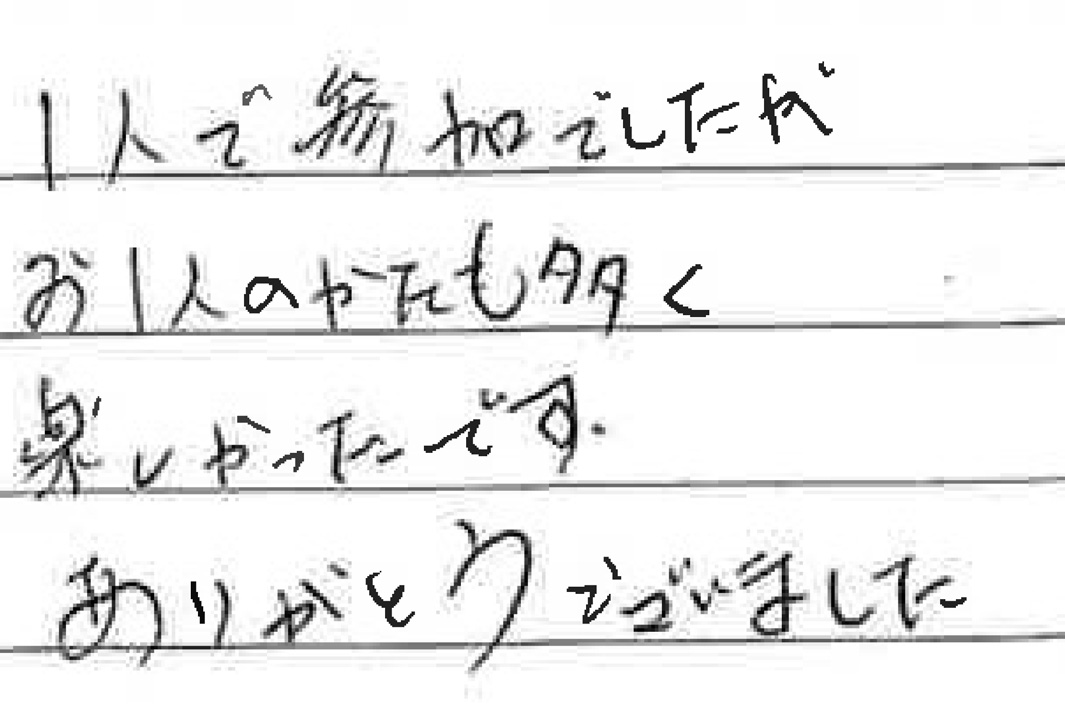 1人で参加でしたが
お1人のかたも多く
楽しかったです.
ありがとうございました